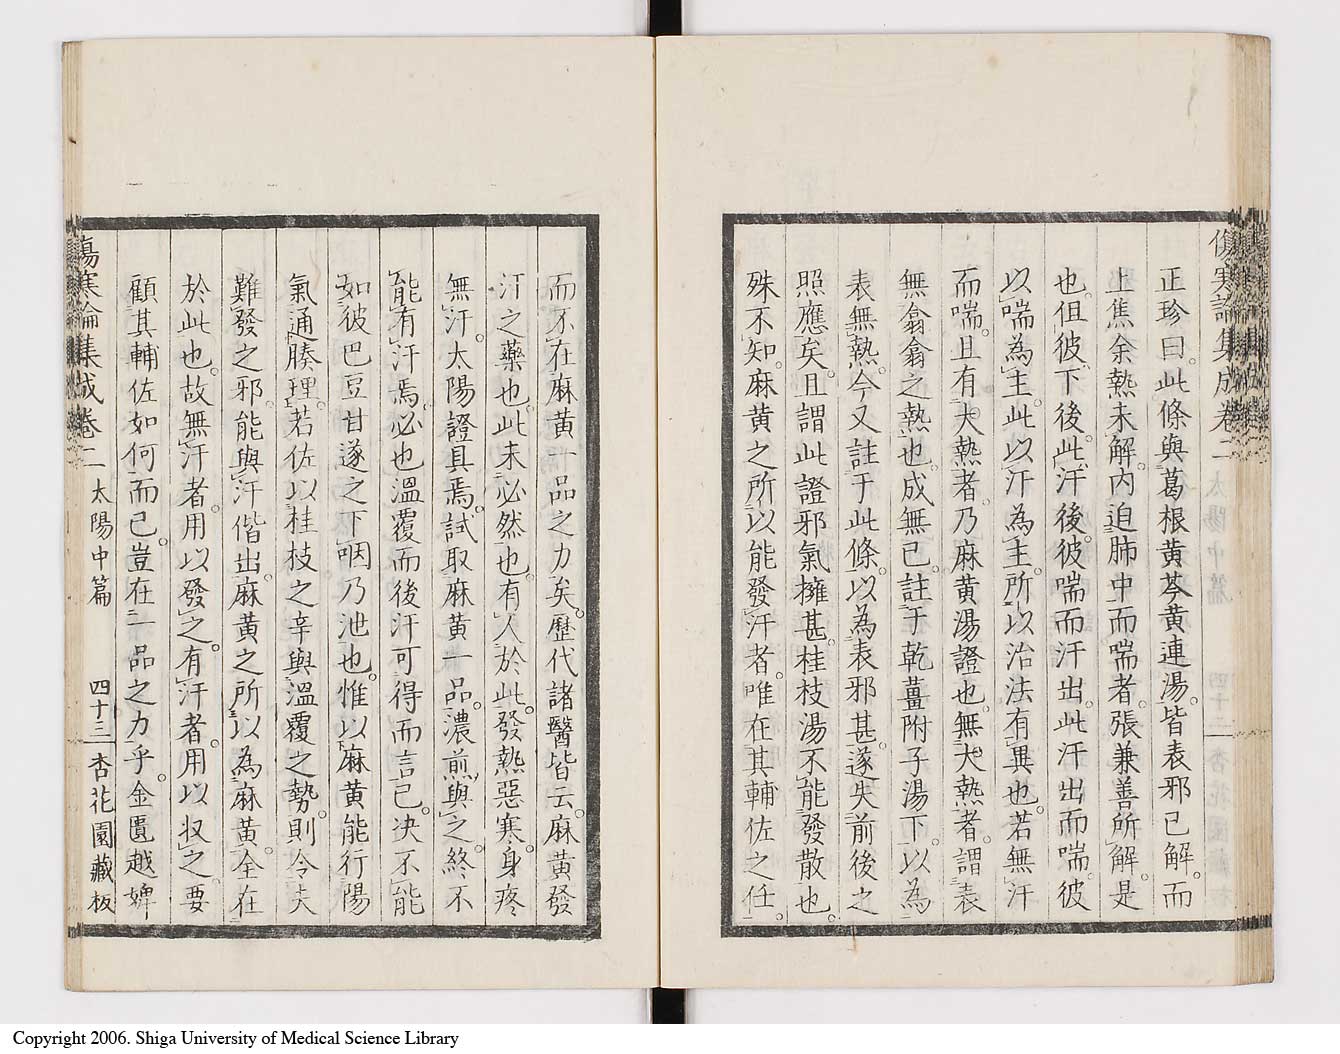 傷寒論集成卷二
正珍曰此條與葛根黃芩黃連湯皆表邪已解而
上焦余熱未解內迫肺中而喘者張兼善所解是
也但彼下後此汗後彼喘而汗出此汗出而喘彼
以喘為主此以汗為主所以治法有異也若無汗
而喘且有大熱者乃麻黃湯證也無大熱者謂表
無翕翕之熱也成無已註于乾薑附子湯下以為
表無熱今又註于此條以為表邪甚遂失前後之
照應矣且謂此證邪氣擁甚桂枝湯不能發散也
殊不知麻黃之所以能發汗者唯在其輔佐之任
而不在麻黃一品之力矣歷代諸醫皆云麻黃發
汗之藥也此未必然也有人於此發熱惡寒身疼
無汗太陽證具焉試取麻黃一品濃煎與之終不
能有汗焉必也溫覆而後汗可得而言已决不能
如彼巴豆甘遂之下咽乃泄也惟以麻黃能行陽
氣通腠理若佐以桂枝之辛與溫覆之勢則令夫
難發之邪能與汗偕出麻黃之所以為麻黃全在
於此也故無汗者用以發之有汗者用以収之要
顧其輔佐如何而已豈在一品之力乎金匱越婢
傷寒論集成卷二 太陽中篇 四十三 杏花園藏板